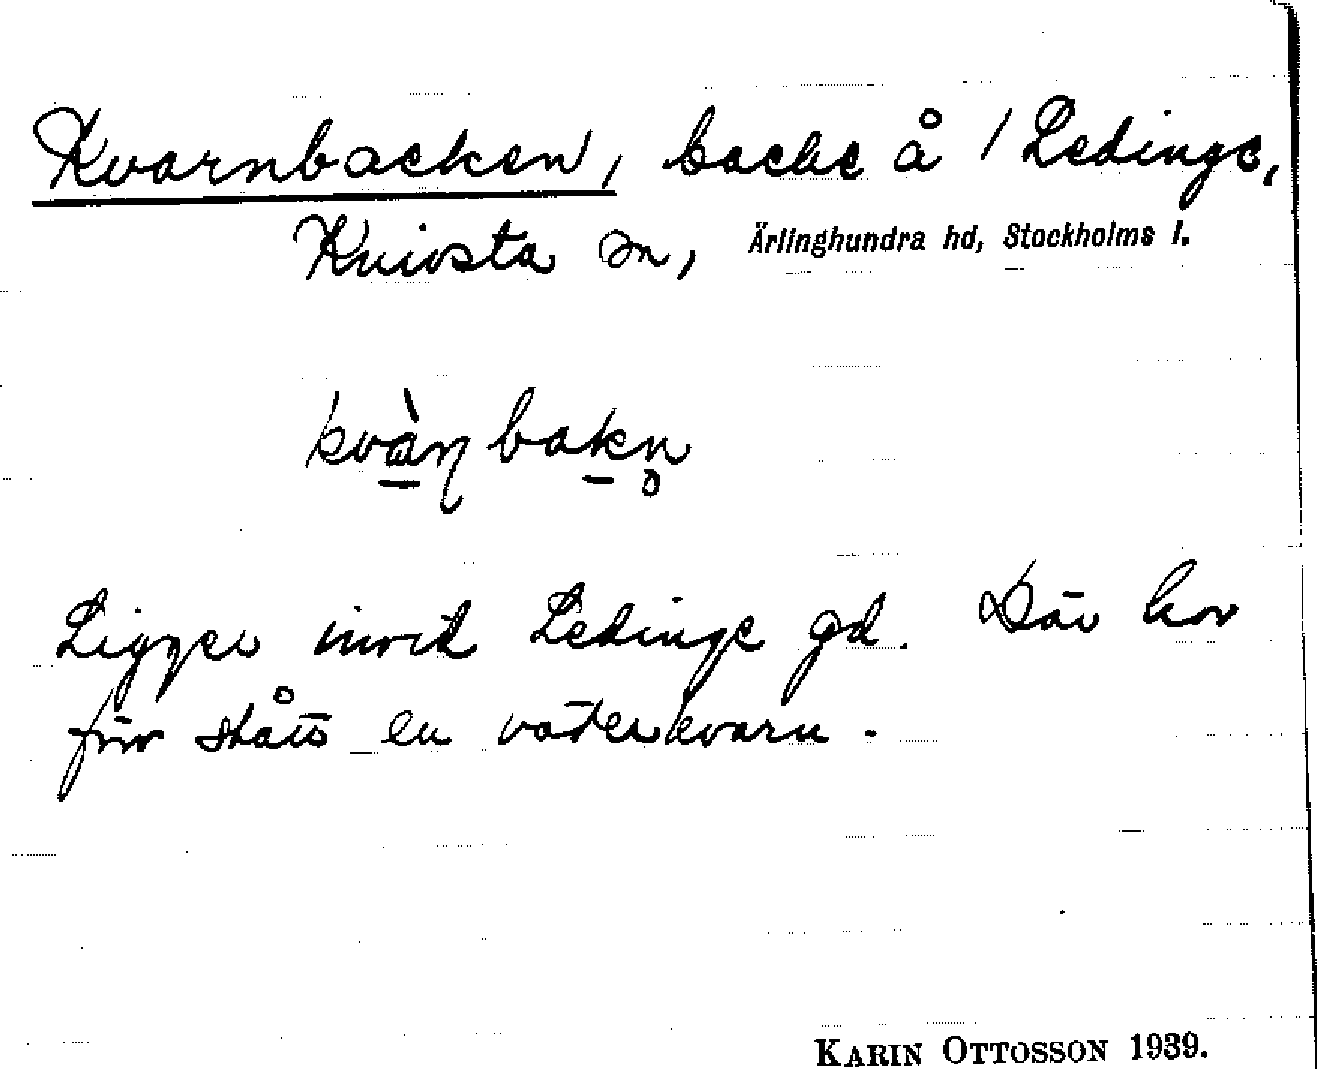 Kvarnbacken, backe å / Ledinge,
Knivsta sn, Ärlinghundra hd, Stockholms l.
kvàṇbakn̥
Ligger invid Ledinge gd. Där har
förr stått en väderkvarn.
KARIN OTTOSSON 1939.